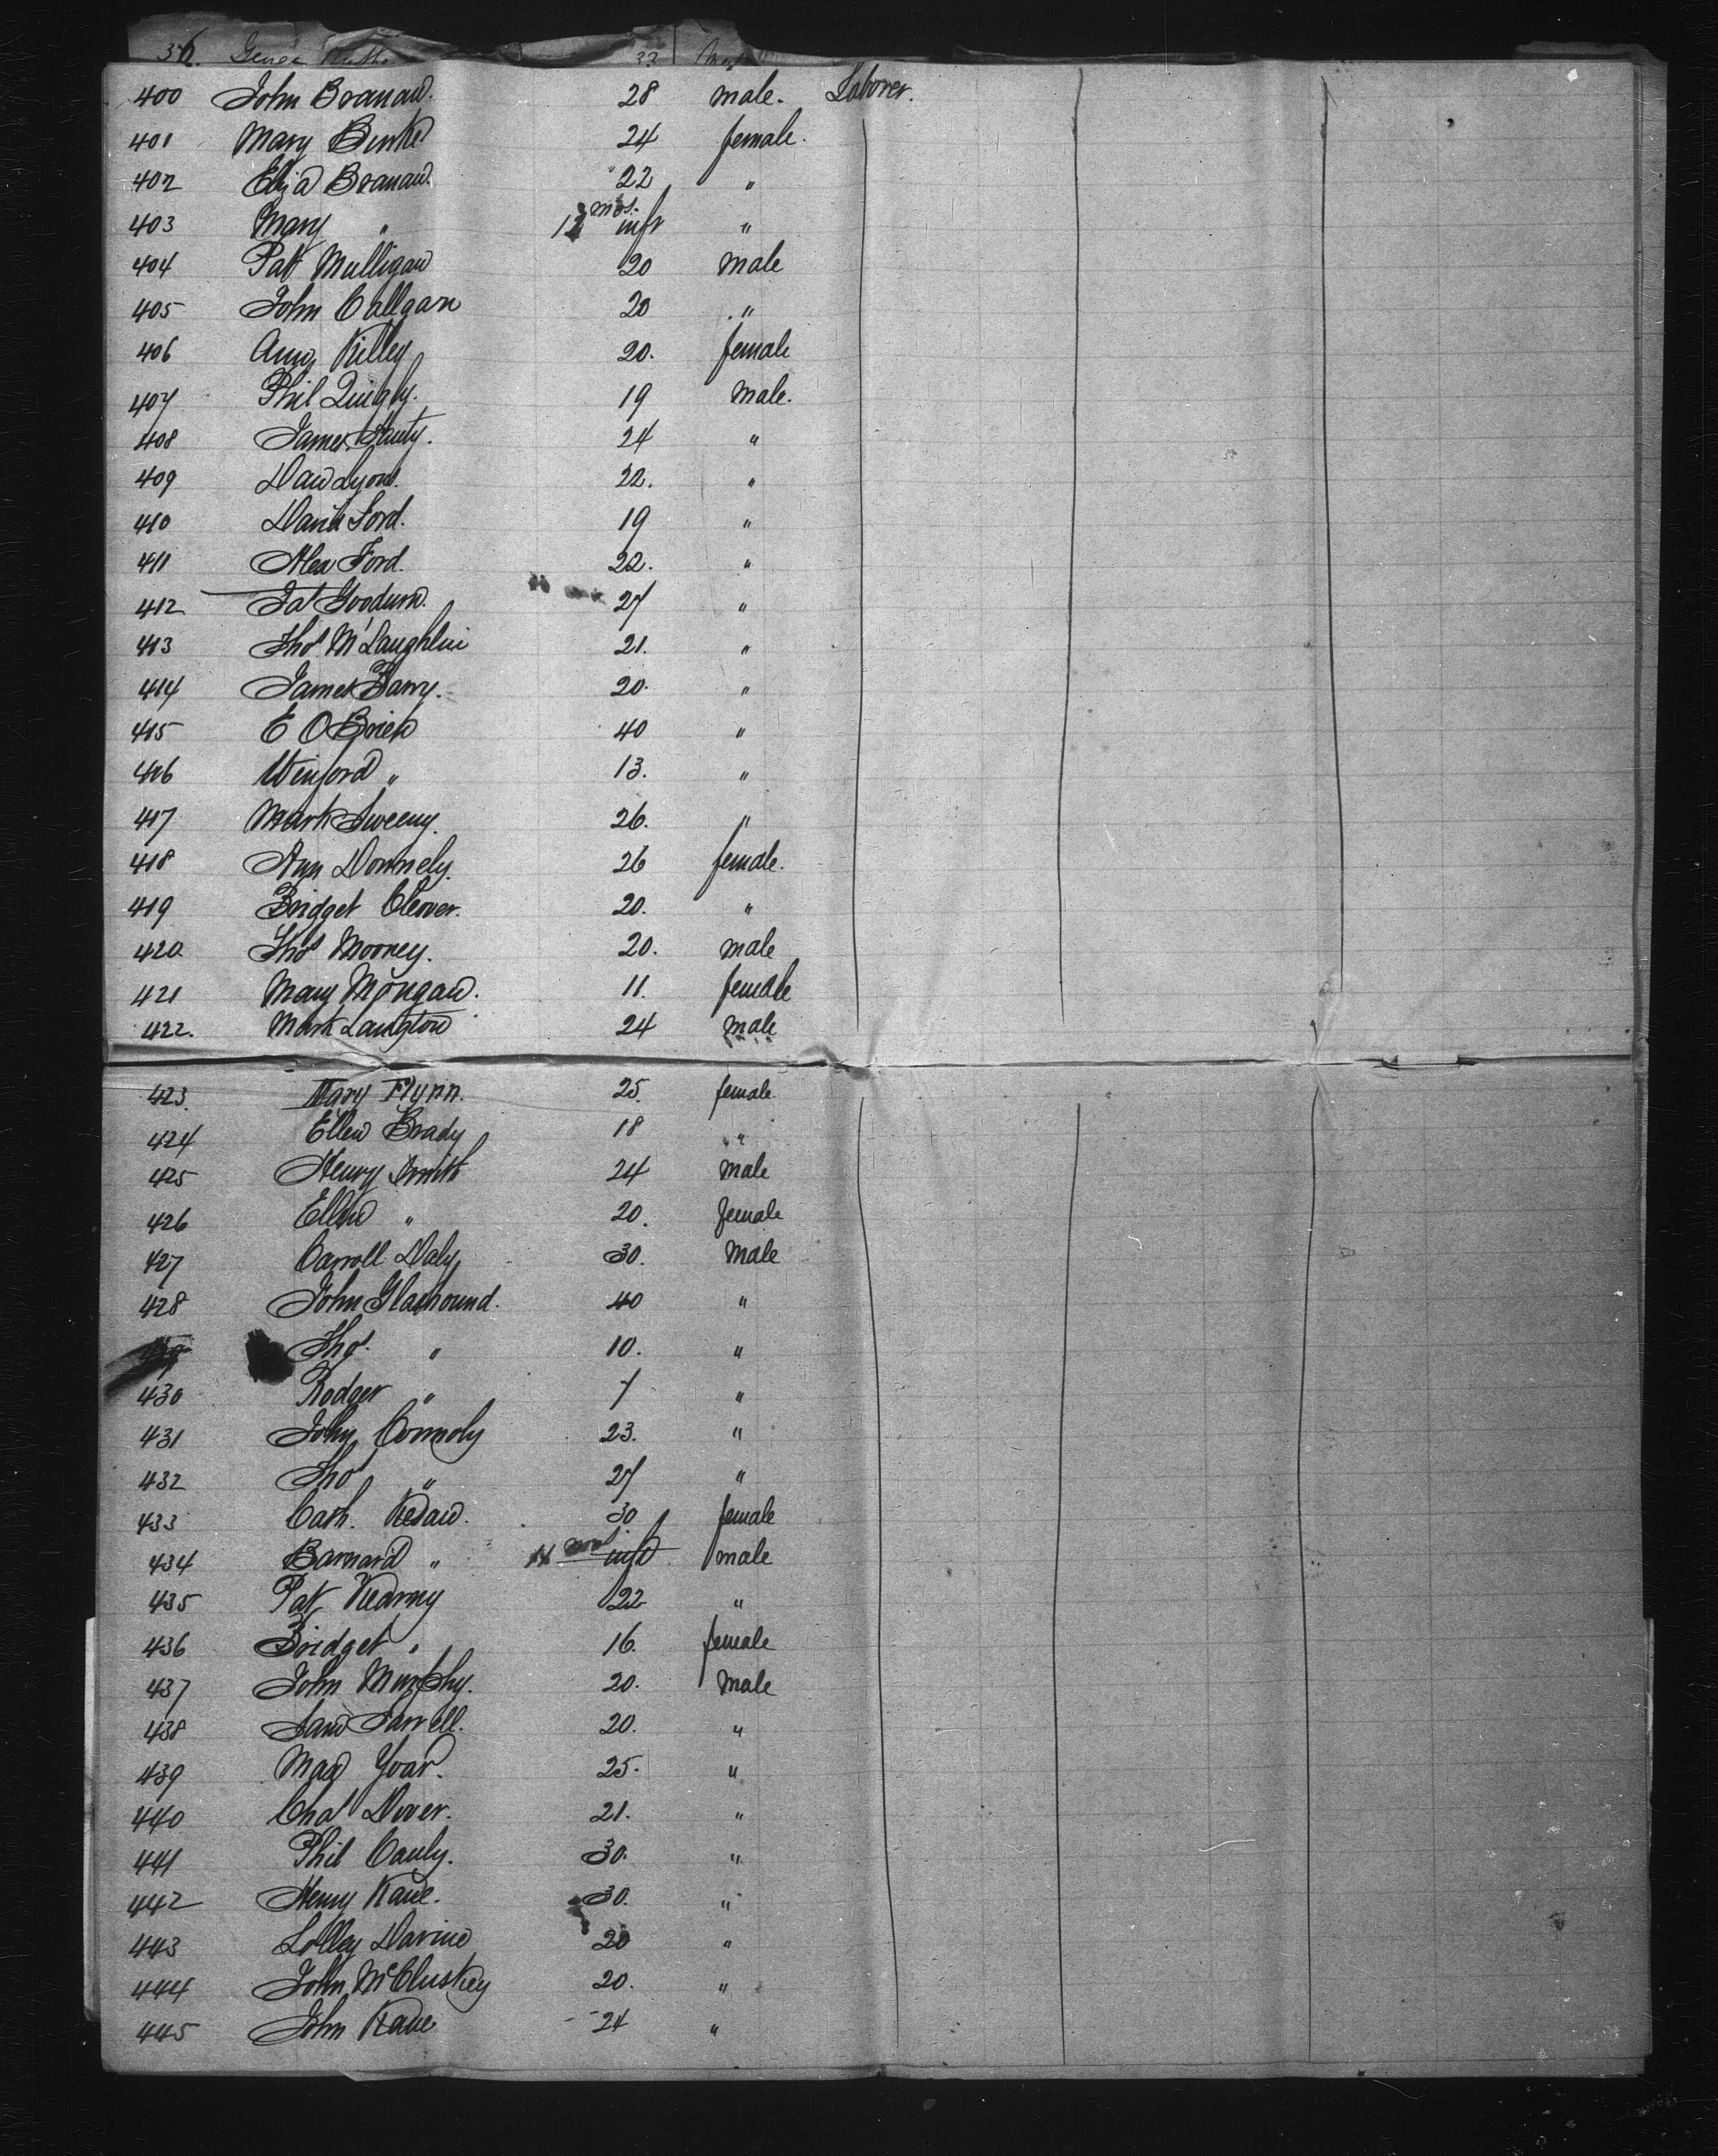 400 John Branan. 28 male. Laborer.
401 Mary Burke 24 female.
402 Eliza Branan 22 "
403 Mary " 12 mos. inft "
404 Pat Mulligan 20 male
405 John Callgan 20 "
406 Ann Killey 20. female
407 Phil Quigly. 19 male.
408 James 24 "
409 Dan Lyons. 22. "
410 Danl Ford. 19 "
411 Alex Ford. 22. "
412 Pat 27 "
413 Thos McLaughlin 21. "
414 James Barry. 20. "
415 E O Brien 40 "
416 Winford " 13. "
417 Mark Sweeny. 26. "
418 Ann Donnely. 26 female.
419 Bridget Clover. 20. "
420 Thos Mooney. 20. male
421 Mary Mongan. 11. female
422. Mark Langton 24 male
423. Mary Flynn. 25. female
424 Ellen Brady 18 "
425 Henry Smith 24 male
426 Ellen " 20. female
427 Carroll Daly 30. Male
428 John Glashound. 40 "
429 Thos. " 10. "
430 Rodger " 7 "
431 John Connoly 23. "
432 Thos " 27 "
433 Cath. 30 female
434 Barnard " mos inft male
435 Pat Kearny 22 "
436 Bridget " 16. female
437 John Murphy. 20. Male
438 Farrell. 20. "
439 25. "
440 Chas Dover. 21. "
441 Phil Cauly. 30. "
442 Henry Kane. 30. "
443 Davine 20 "
444 John McCluskey 20. "
445 John Kane 24 "